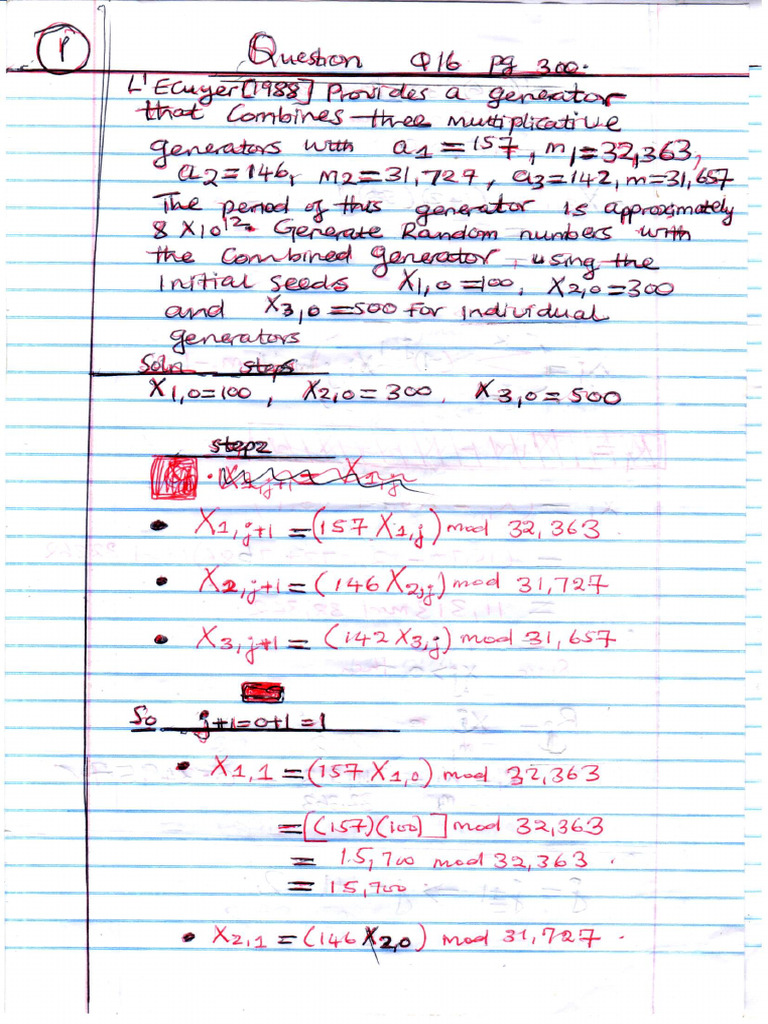 1
Question Q16 pg 300.
L'Ecuyer [1988] Provides a generator
that Combines three multiplicative
generators with a1 = 157, m1 = 32,363,
a2 = 146, m2 = 31,727, a3 = 142, m = 31,657
The period of this generator is approximately
8 X 10^12. Generate Random numbers with
the Combined generator, using the
initial seeds X1,0 = 100, X2,0 = 300
and X3,0 = 500 for individual
generators
Soln steps
X1,0 = 100, X2,0 = 300, X3,0 = 500
step2
• X1,j+1 = (157 X1,j) mod 32,363.
• X2,j+1 = (146 X2,j) mod 31,727
• X3,j+1 = (142 X3,j) mod 31,657.
So j+1 = 0+1 = 1
• X1,1 = (157 X1,0) mod 32,363
= [(157)(100)] mod 32,363
= 15,700 mod 32,363.
= 15,700
• X2,1 = (146 X2,0) mod 31,727.